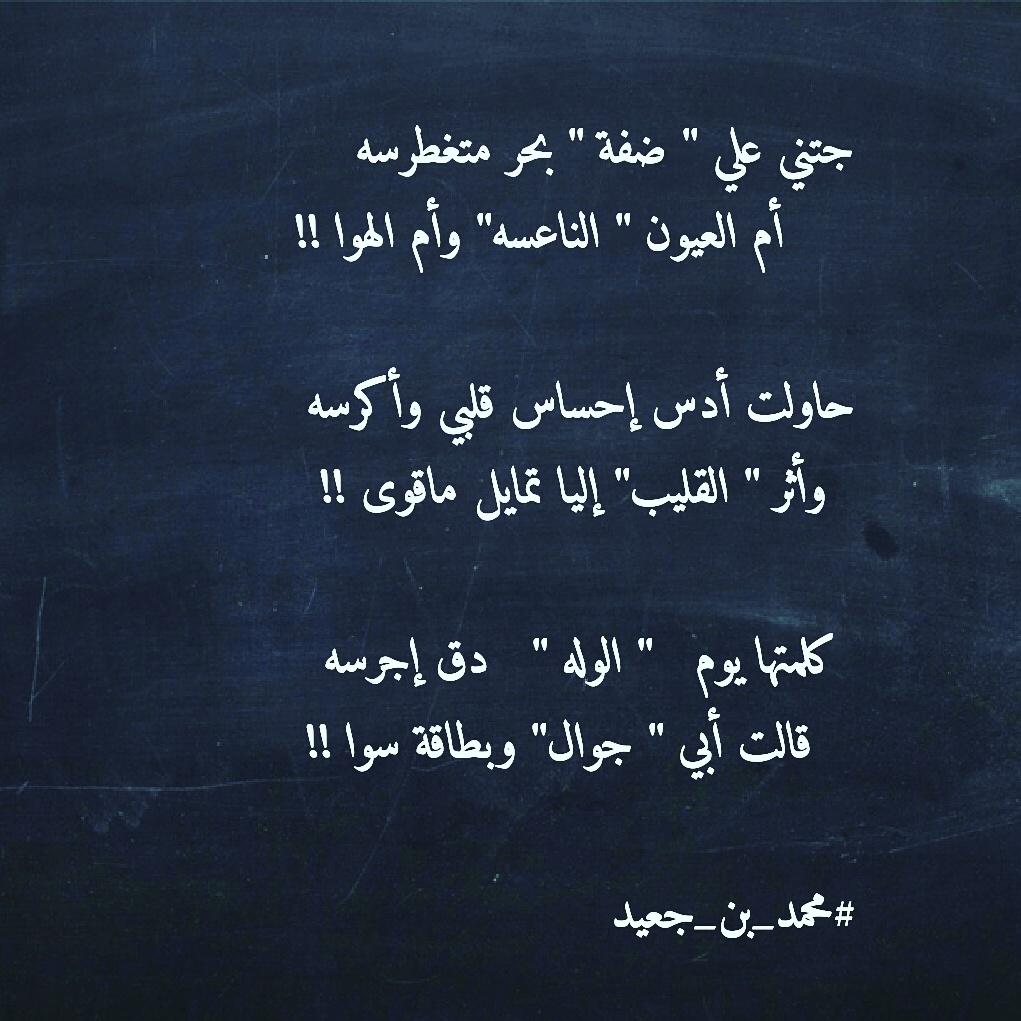 جتني علي " ضفة " بحر متغطرسه
أم العيون " الناعسه" وأم الهوا !!
حاولت أدس إحساس قلبي وأكرسه
وأثر " القليب" إليا تمايل ماقوى !!
كلمتها يوم " الوله " دق إجرسه
قالت أبي " جوال" وبطاقة سوا !!
#محمد_بن_جعيد